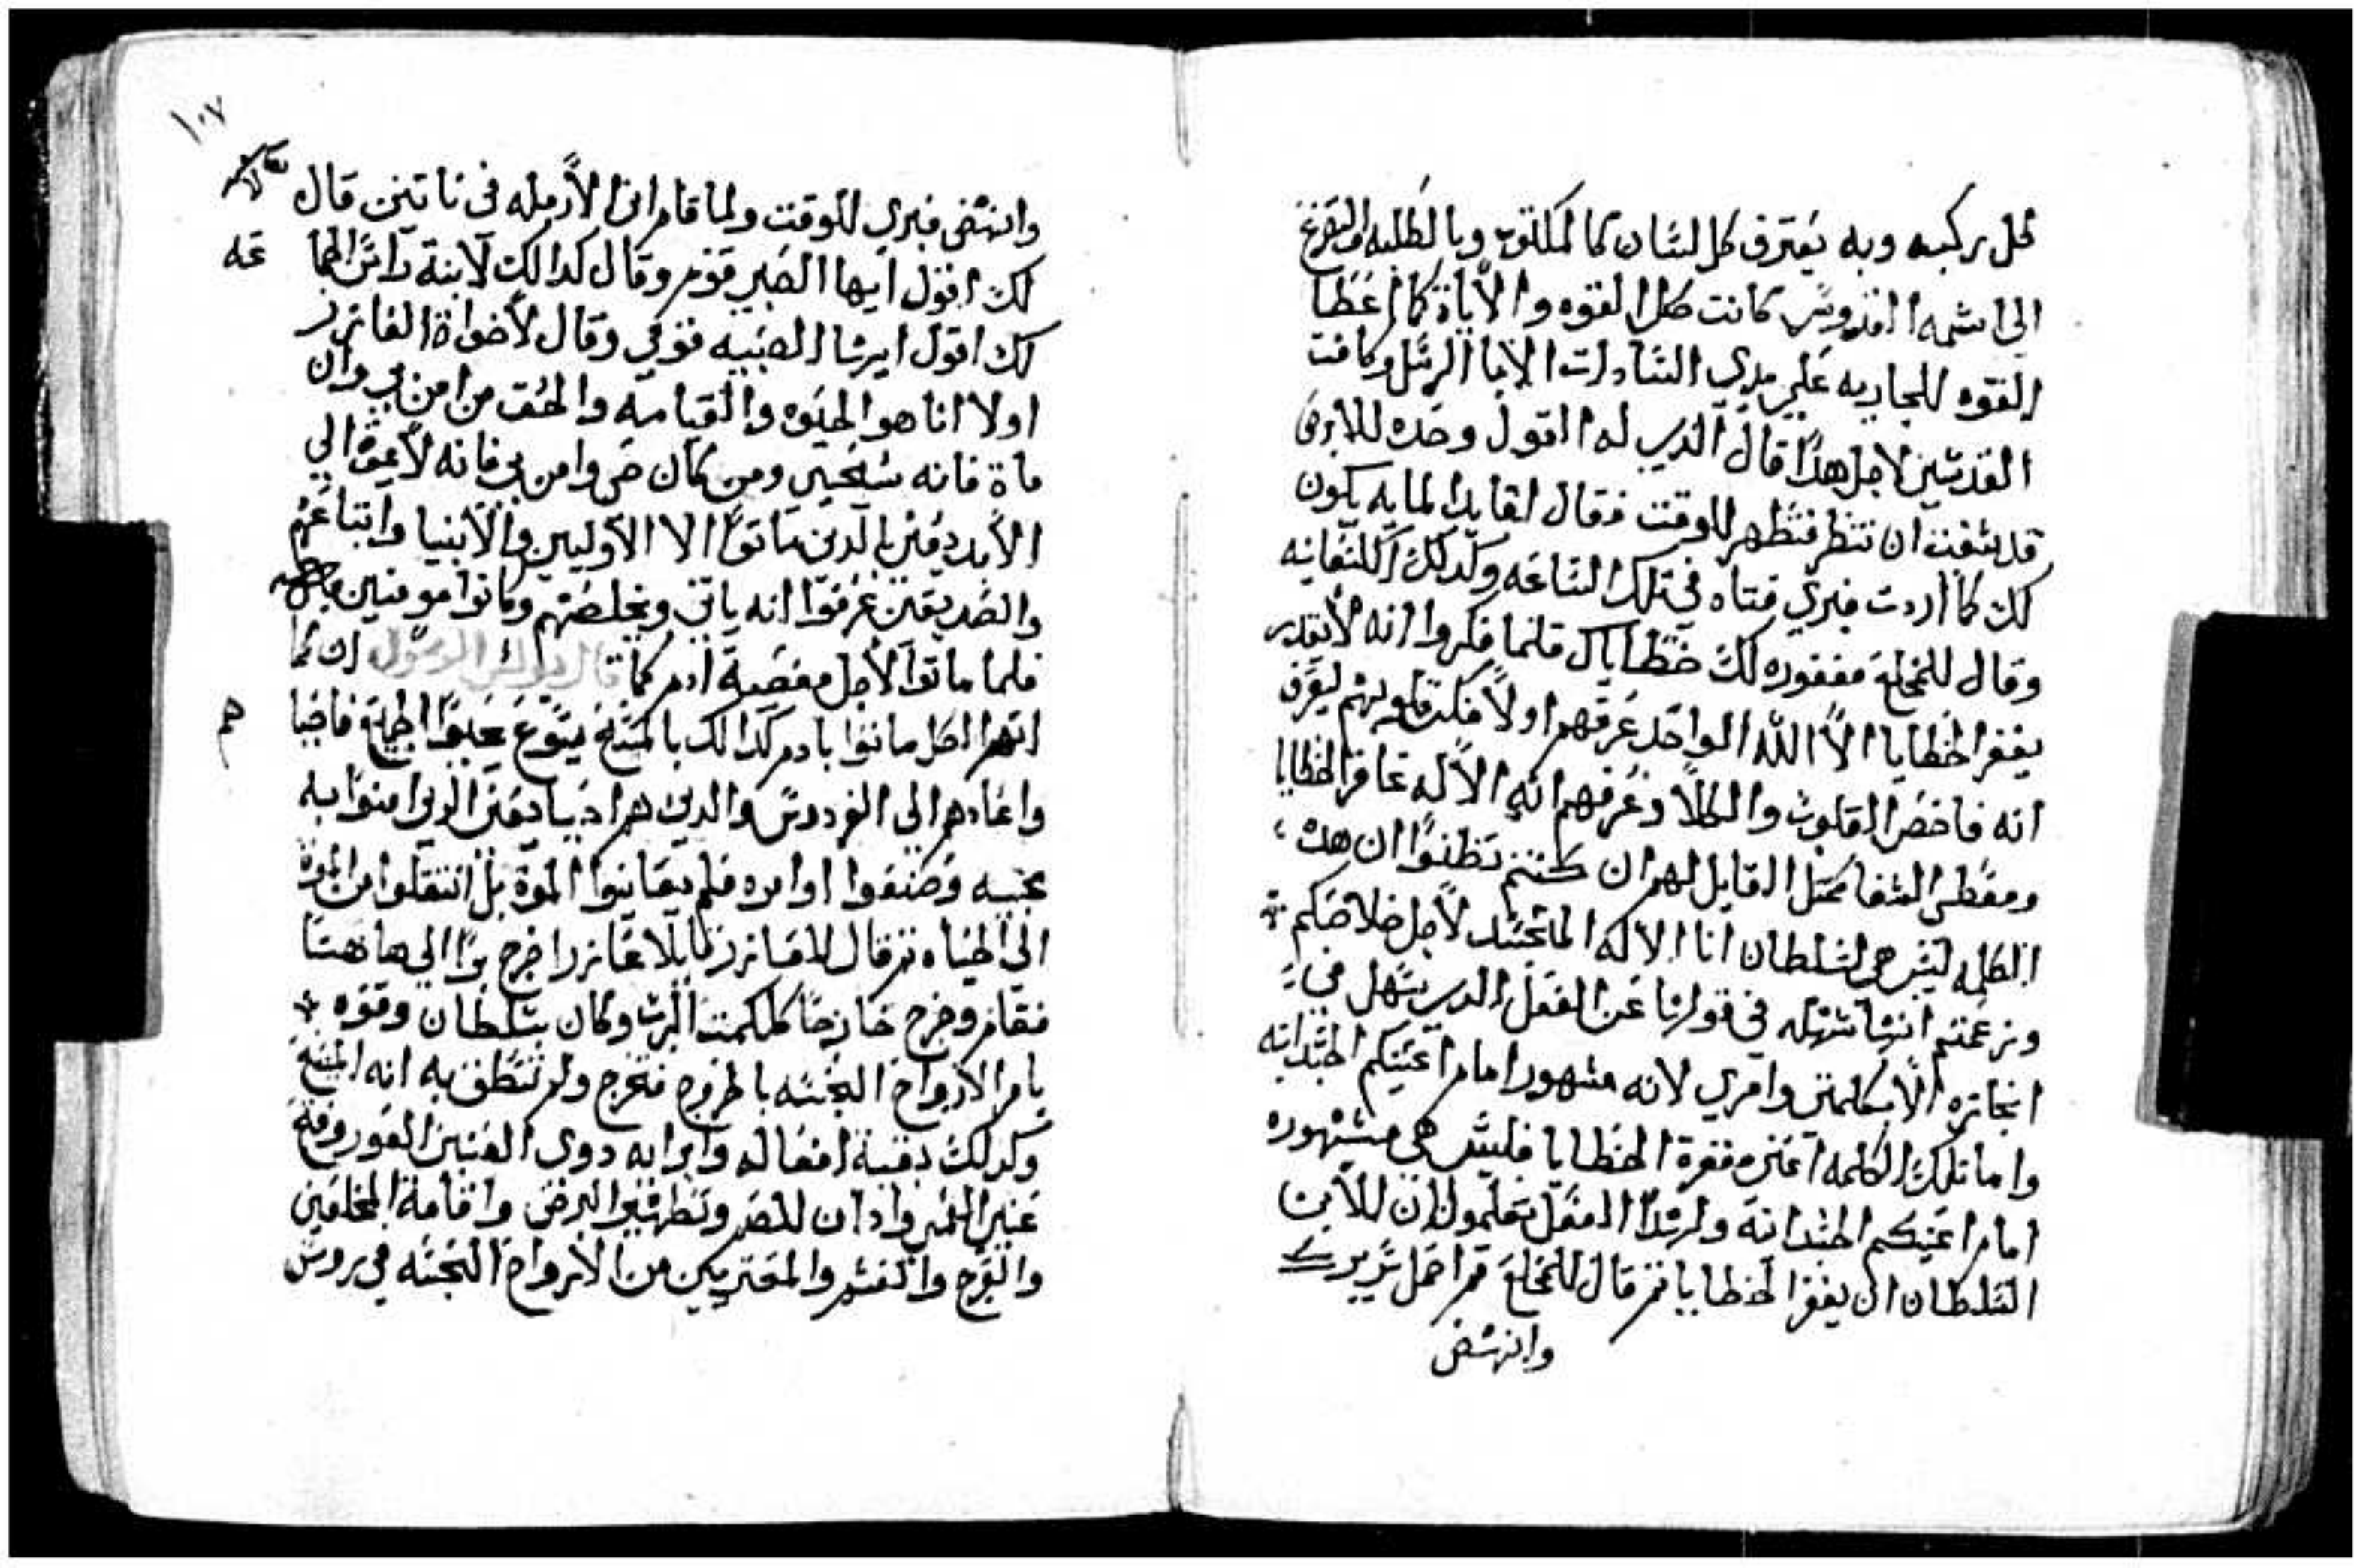 كل ركبه وبه يعترف كل لسان كما لمكتوب وبالطلبه والتضرع
الى اسمه القدوس كانت كل القوه والاياة كما اعطا
القوه الجاريه على يدي السادات الابا الرسل وكافت
القدسين لاجل هدا قال الدي له القول وحده للابرص
قد شفت ان تتطهر فتطهر للوقت فقال لقايد لمايه يكون
لك كما اردت فبري فتاه في تلك الساعه وكدلك الكنعانيه
وقال للمخلع مغفوره لك خطاياك فلما فكروا انه لا يقدر
يغفر الخطايا الا الله الواحد عرفهم اولا فكر قلوبهم ليعرف
انه فاحص القلوب والكلا وعرفهم انه الاله غافر الخطايا
ومعطى الشفا القايل لهم ان كنتم تظنوا ان هده
الكلمه ليس هى لسلطان انا الاله المتجسد لاجل خلاصكم
وزعمتم انها سهله في قولنا عن الفعل الدي يسهل في
انجازه الا بكلمتى وامري لانه مشهور امام اعينكم الجسدانيه
واما تلك الكلمه اعنى مغفرة الخطايا فليس هى مشهوره
امام اعينكم الجسدانيه ولهدا الفعل تعلمون ان للابن
السلطان ان يغفر الخطايا تم قال للمخلع قم احمل سريرك
وانهض
١٠٧
وانهض فبري للوقت ولما قام ابن الارمله في نايين قال
لك اقول ايها الصبي قوم وقال كدالك لابنة راس الجما
عه
لك اقول ايتها الصبيه قومي وقال لاخواة العازر
اولا انا هو الحيوه والقيامه والحق من امن بي وان
ماة فانه سيحيى ومن كان حى وامن بي فانه لا يموة الى
الابد يعنى الدين ماتوا الا الاوليين والانبيا واتباعهم
والصديقين عرفوا انه ياتى ويخلصهم وكانوا مومنين
فلما ماتوا لاجل معصية ادم كما قال بولس الرسول ان كما
انهم الكل ماتوا بادم كدالك بالمسيح يسوع يحيوا الجميع فاحيا
هم
واعادهم الى الفردوس والدين هم احيا يعنى الدين امنوا به
بمحبته وصنعوا اوامره فلم يعاينوا الموة بل انتقلوا من الموة
الى الحياه تم قال للعازر قايلا عازر اخرج برا الى هاهنا
فقام وخرج خارجا كلكمت الرب وكان بسلطان وقوه
يامر الارواح النجسه بالخروج فتخرج ولم تنطق به انه المسيح
وكدلك بقية افعاله وابرايه دوي العنين الغور وفتح
عنين العمي وادان للصم وتطهير البرص واقامة المخلعين
والعرج والعسم والمعتريين من الارواح النجسه في روس